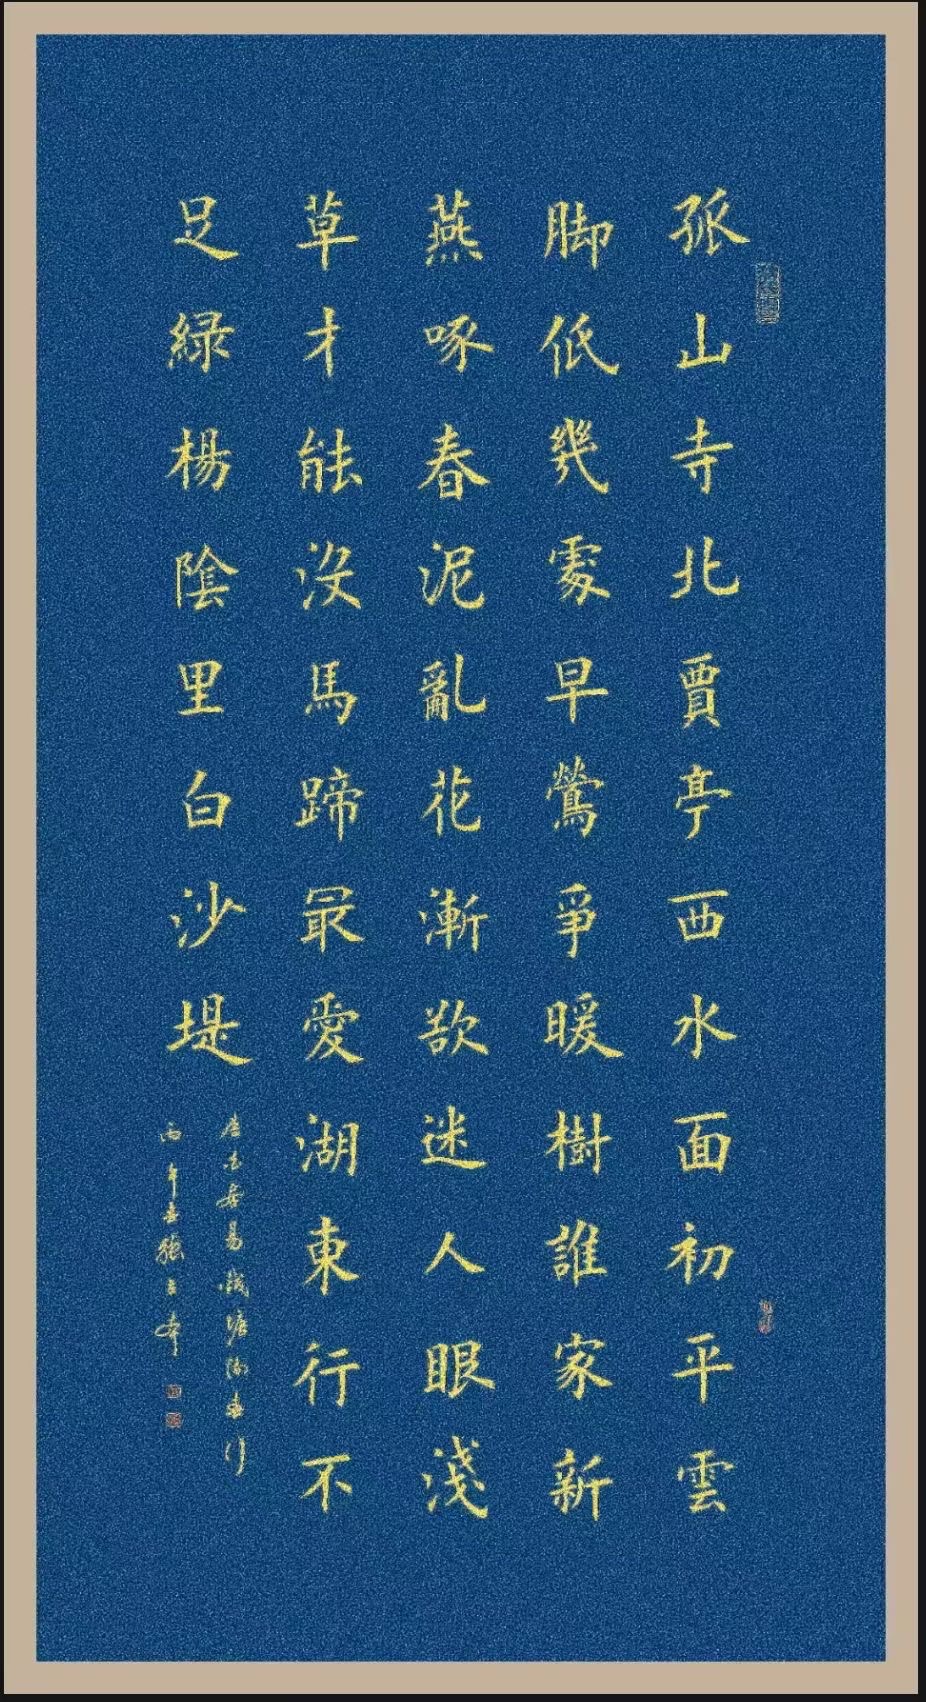 孤山寺北賈亭西水面初平雲
脚低幾處早鶯爭暖樹誰家新
燕啄春泥亂花漸欲迷人眼淺
草才能沒馬蹄最愛湖東行不
足綠楊陰里白沙堤
唐白居易錢塘湖春行